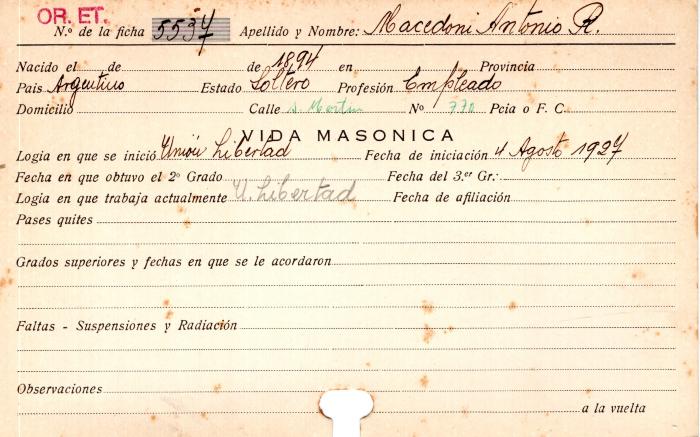 OR. ET.
N.º de la ficha 5537 Apellido y Nombre: Macedoni Antonio R.
Nacido el de de 1894 en Provincia
Pais Argentino Estado Soltero Profesión Empleado
Domicilio Calle S. Martin Nº 770 Pcia o F. C.
VIDA MASONICA
Logia en que se inició Unión Libertad Fecha de iniciación 4 Agosto 1927
Fecha en que obtuvo el 2º Grado Fecha del 3.er Gr.:
Logia en que trabaja actualmente U. Libertad Fecha de afiliación
Pases quites
Grados superiores y fechas en que se le acordaron
Faltas - Suspensiones y Radiación
Observaciones
a la vuelta